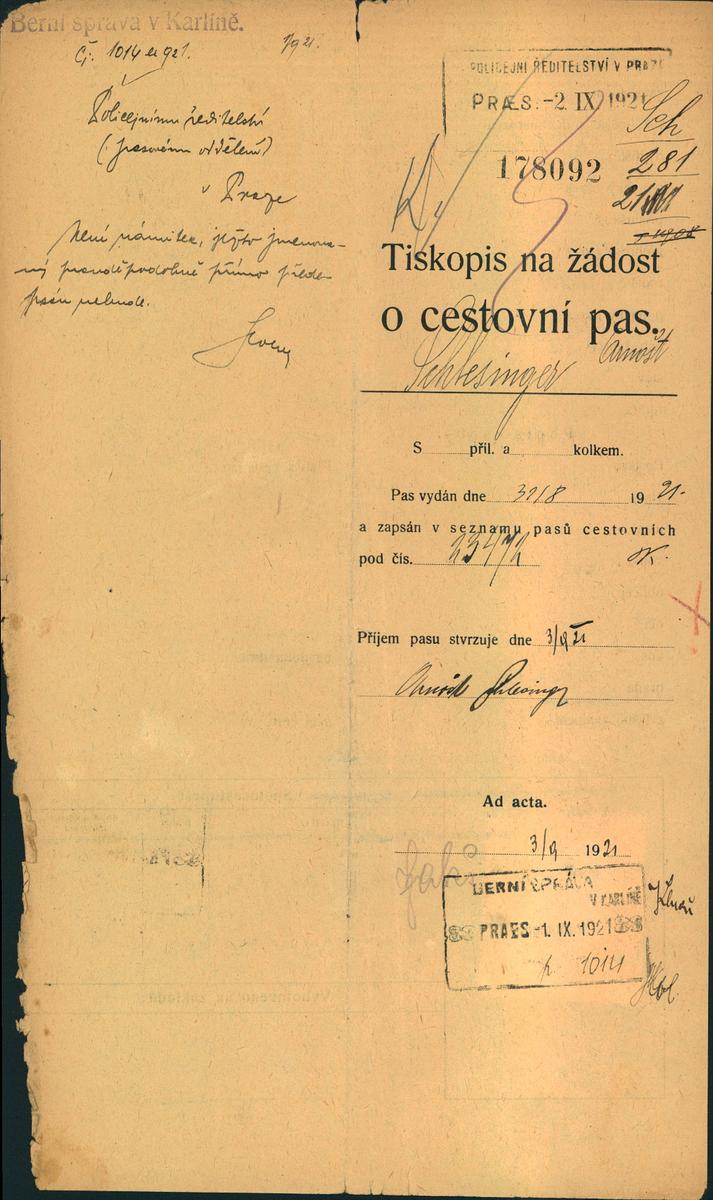 Berní správa v Karlíně.
Čj. 1014 ex 921. 1/9 21.
Policejnímu ředitelství
(pasovému oddělení)
v Praze
Není námitek, ježto jmenova-
ný pravděpodobně přímo přede-
psán nebude.
POLICEJNÍ ŘEDITELSTVÍ V PRAZE
PRAES. -2. IX. 1921
Sch
178092 281
21
Tiskopis na žádost
o cestovní pas.
Schlesinger Arnošt
S příl. a kolkem.
Pas vydán dne 31/8 1921.
a zapsán v seznamu pasů cestovních
pod čís. 23472
Příjem pasu stvrzuje dne 3/9 21
Arnošt Schlesinger
Ad acta.
3/9 1921
BERNÍ SPRÁVA
V KARLÍNĚ
PRAES -1. IX. 1921
1014